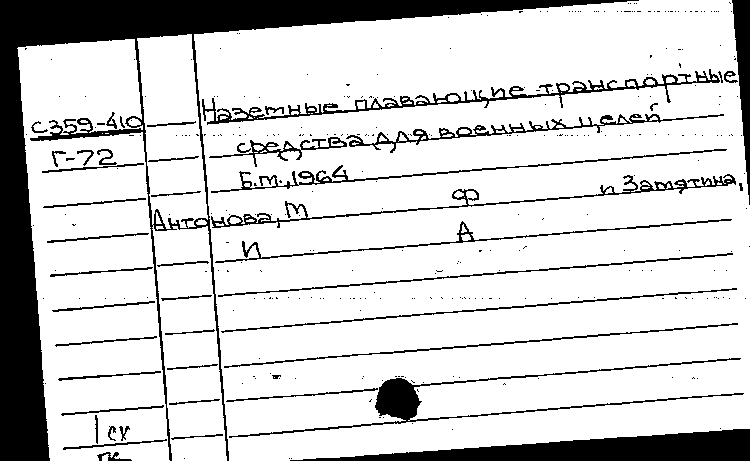 Наземные плавающие транспортные
С359-410
средства для военных целей
Г-72
Б.м., 1964
Антонова, М Ф и Замятина,
И А
1 ск